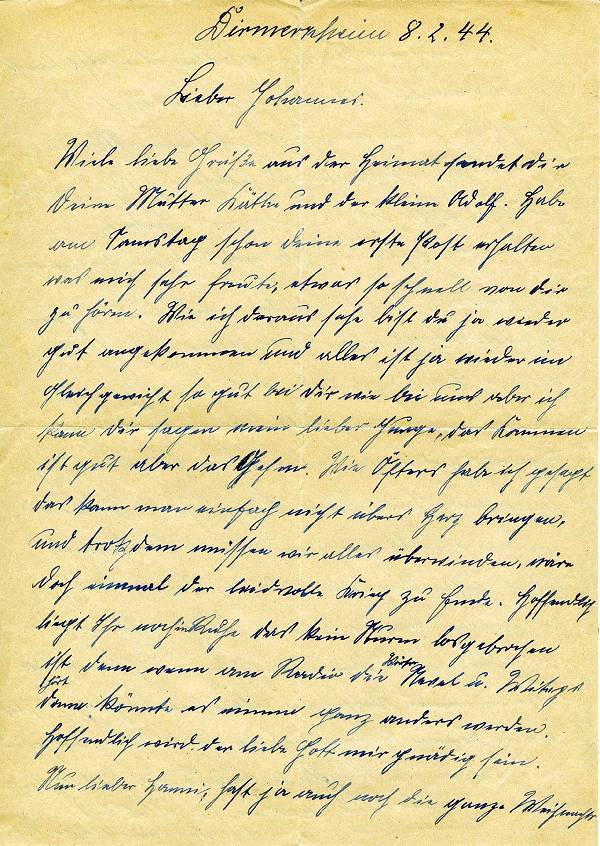 Dirmerzheim 8.2.44.
Lieber Johannes.
Viele liebe Grüße aus der Heimat sendet Dir
Deine Mutter Käthe und der kleine Adolf. Habe
am Samstag schon deine erste Post erhalten
was mich sehr freute, etwas so schnell von dir
zu hören. Wie ich daraus sehe bist du ja wieder
gut angekommen und alles ist ja wieder im
Gleichgewicht so gut bei Dir wie bei uns aber ich
kann Dir sagen mein lieber Junge, das Kommen
ist gut aber das Gehen. Wie Öfters habe ich gesagt
das kann man einfach nicht übers Herz bringen,
und trotzdem müssen wir alles überwinden, wäre
doch einmal der leidvolle Krieg zu Ende. Hoffendlich
liegt Ihr noch in Ruhe das kein Sturm losgebrochen
ist denn wenn am Radio die Wörter Newel u. Witeps
hört
dann könnte es einem ganz anders werden.
Hoffendlich wird der liebe Gott mir gnädig sein.
Nun lieber Hanni, hast ja auch noch die ganze Weihnachts